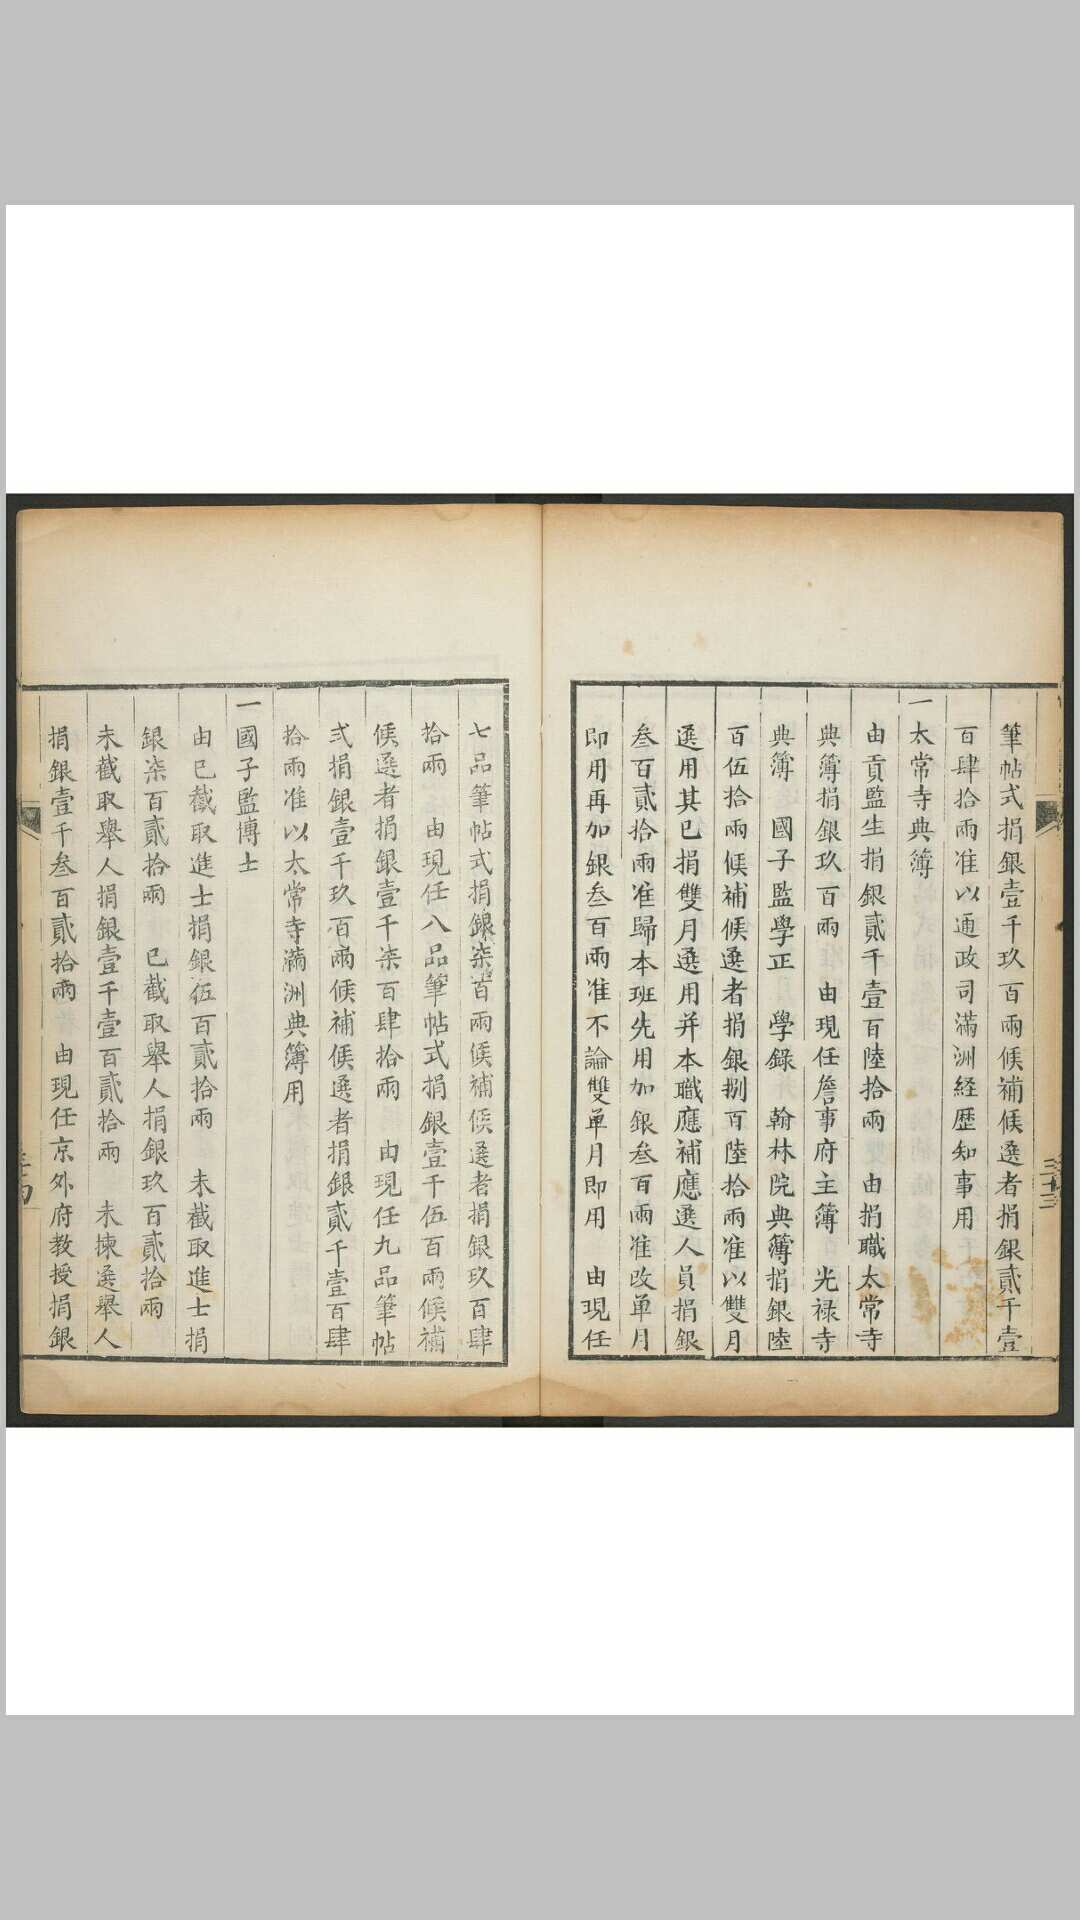 筆帖式捐銀壹千玖百兩候補候選者捐銀貳千壹
百肆拾兩准以通政司滿洲経歷知事用
一太常寺典簿
由貢監生捐銀貳千壹百陸拾兩 由捐職太常寺
典簿捐銀玖百兩 由現任詹事府主簿 光禄寺
典簿 國子監學正 學錄 翰林院典簿捐銀陸
百伍拾兩候補候選者捐銀捌百陸拾兩准以雙月
選用其已捐雙月選用并本職應補應選人員捐銀
叁百貳拾兩准歸本班先用加銀叁百兩准改单月
即用再加銀叁百兩准不論雙单月即用 由現任
七品筆帖式捐銀柒百兩候補候選者捐銀玖百肆
拾兩 由現任八品筆帖式捐銀壹千伍百兩候補
候選者捐銀壹千柒百肆拾兩 由現任九品筆帖
式捐銀壹千玖百兩候補候選者捐銀貳千壹百肆
拾兩准以太常寺滿洲典簿用
一國子監博士
由已截取進士捐銀伍百貳拾兩 未截取進士捐
銀柒百貳拾兩 已截取舉人捐銀玖百貳拾兩
未截取舉人捐銀壹千壹百貳拾兩 未揀選舉人
捐銀壹千叁百貳拾兩 由現任京外府教授捐銀